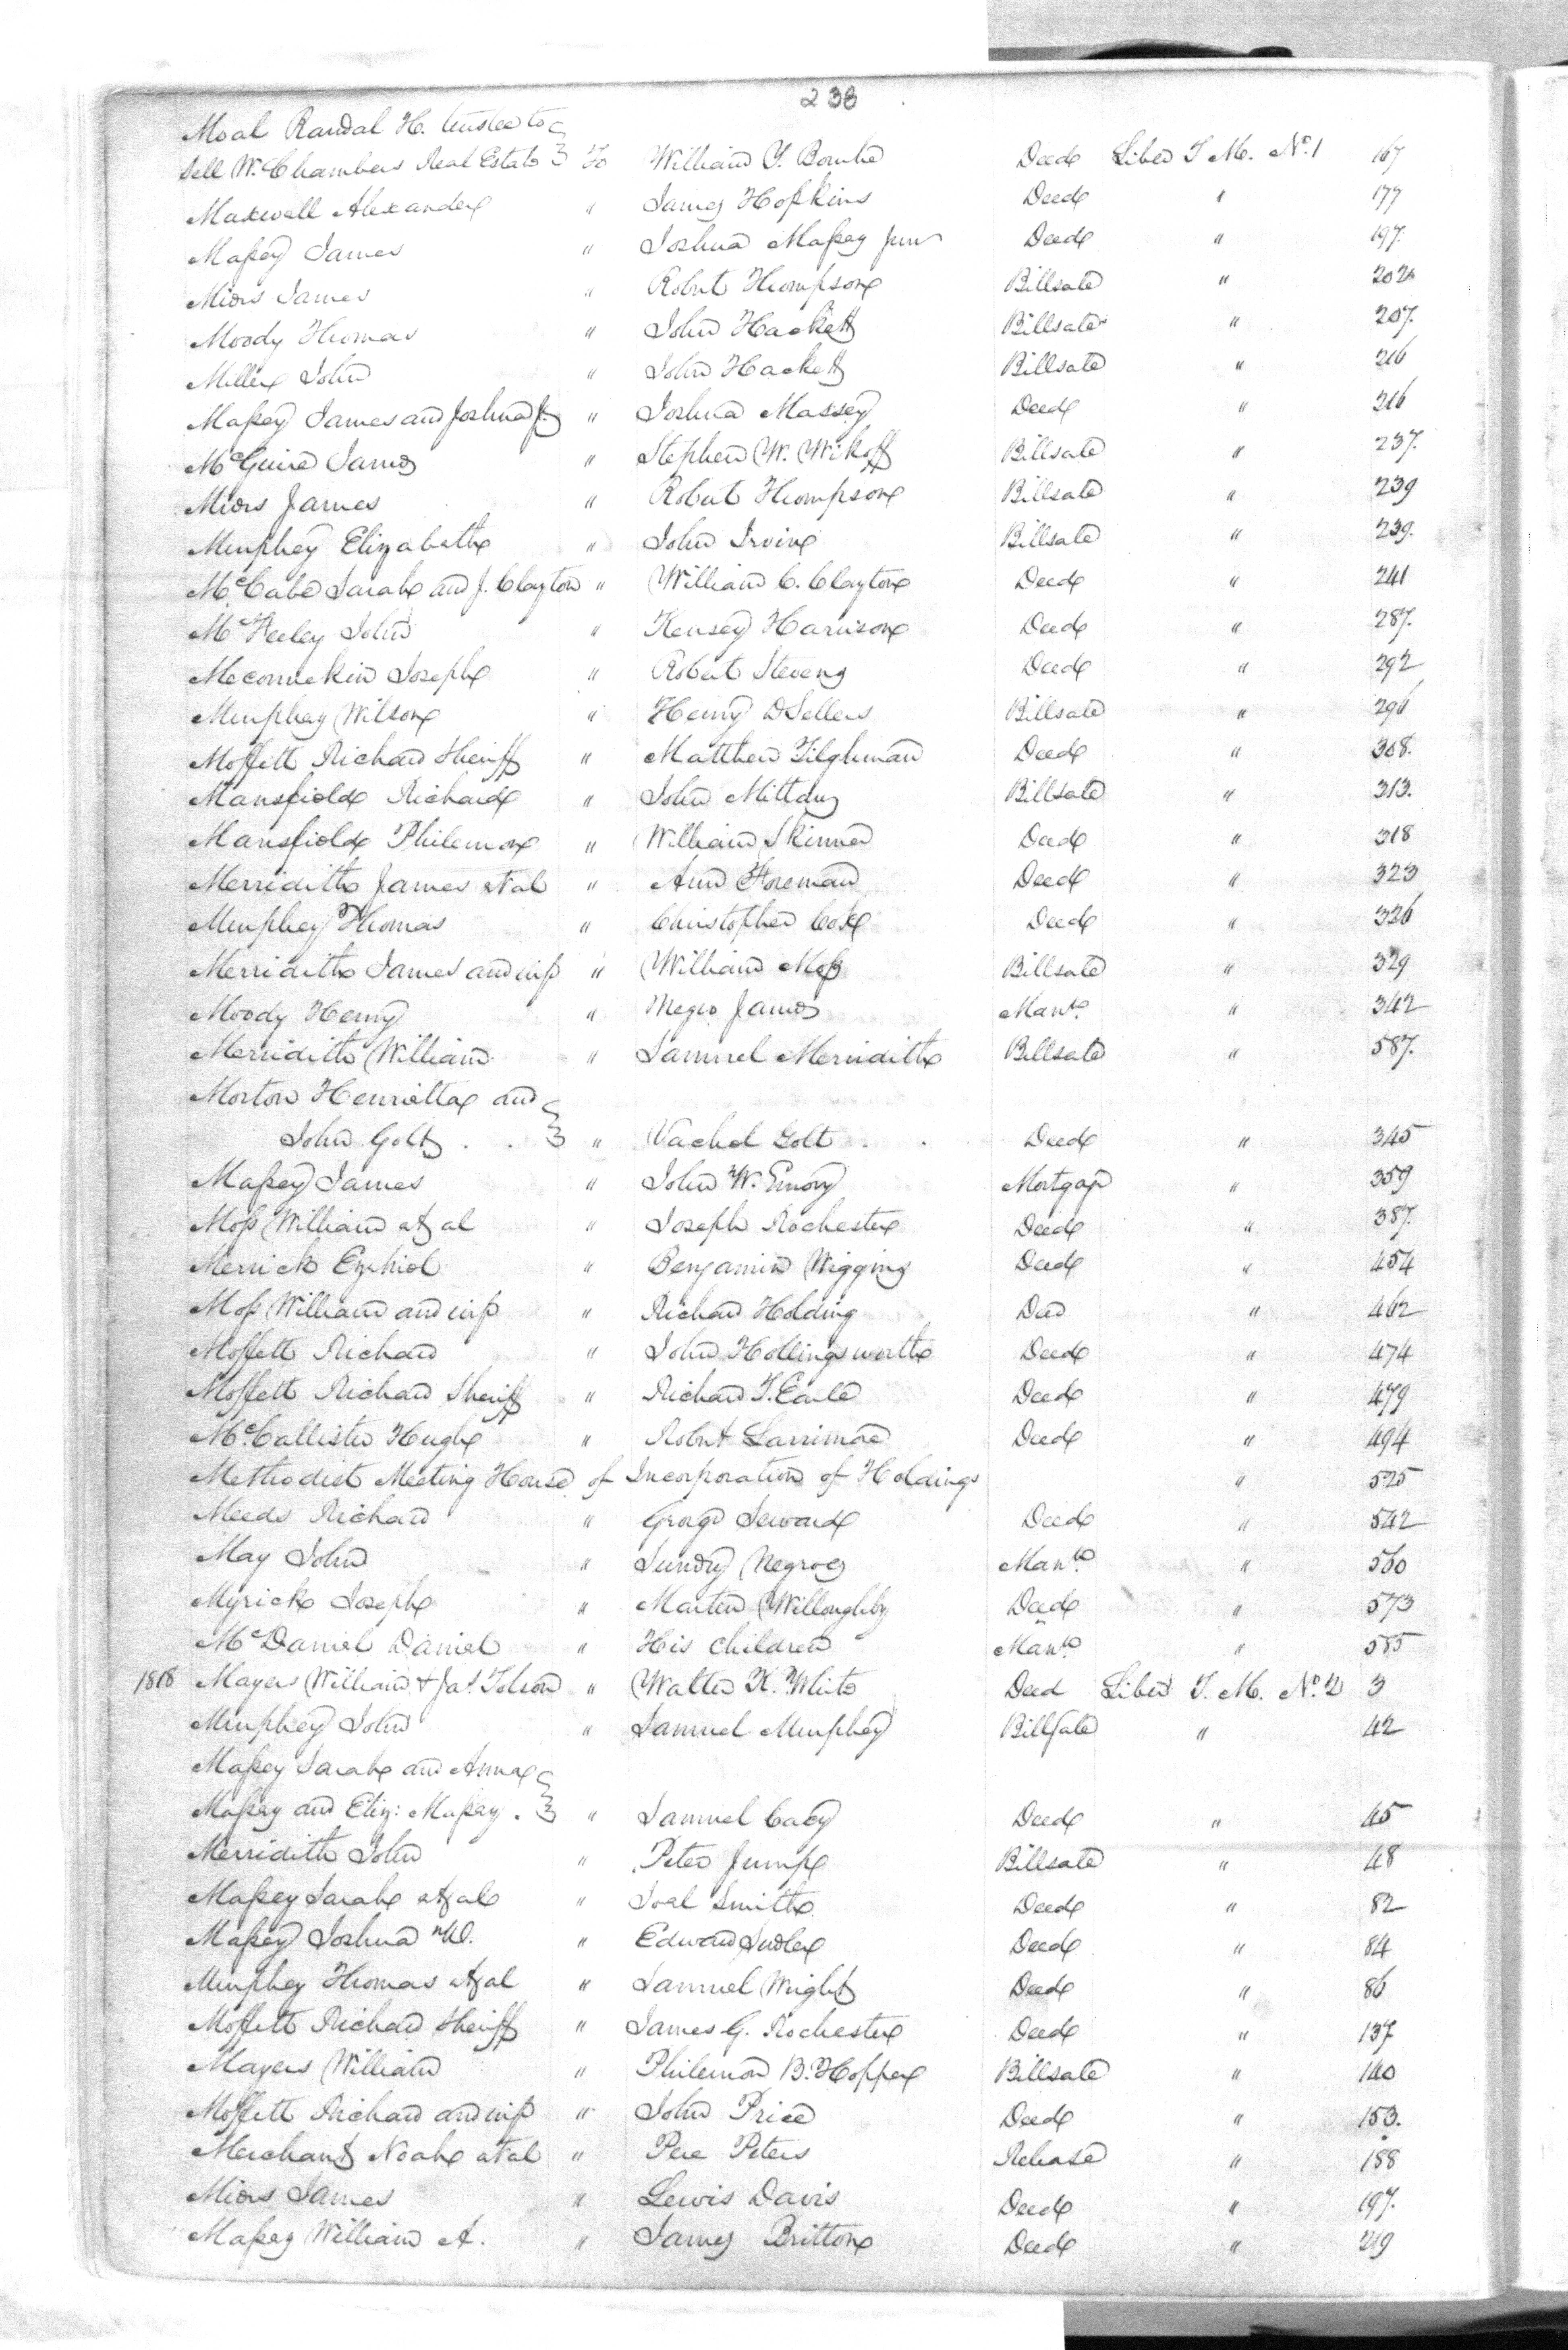 238
Moal Randal H. trustee to
Sell W. Chambers Real Estate } To William Y. Bourke Deed Liber T M. No. 1 167
Maxwell Alexander " James Hopkins Deed " 177
Massey James " Joshua Massey Junr Deed " 197.
Miers James " Robert Thompson Billsale " 202
Moody Thomas " John Hackett Billsale " 207.
Miller John " John Hackett Billsale " 216
Massey James and Joshua Jr. " Joshua Massey Deed " 216
McGuire James " Stephen W. Wikoff Billsale " 237.
Miers James " Robert Thompson Billsale " 239
Murphey Elizabeth " John Irvine Billsale " 239.
McCabe Sarah and J. Clayton " William C. Clayton Deed " 241
McFeeley John " Kensey Harrison Deed " 287.
Meconnekin Joseph " Robert Stevens Deed " 292
Murphey Wilson " Henry D Sellers Billsale " 296
Moffett Richard Sheriff " Matthew Tilghman Deed " 308.
Mansfield Richard " John Billsale " 313.
Mansfield Philemon " William Skinner Deed " 318
Merridith James et al " Ann Foreman Deed " 323
Murphey Thomas " Christopher Cox Deed " 326
Merridith James and wife " William Moss Billsale " 329
Moody Henry " Negro James Mann. " 342
Merridith William " Samuel Merridith Billsale " 587.
Morton Henrietta and
John Golt . . } " Vachel Golt . . Deed " 345
Massey James " John W. Emory Mortgage " 359
Moss William et al " Joseph Rochester Deed " 387.
Merrick Ezekiel " Benjamin Wiggins Deed " 454
Moss William and wife " Richard Holding Deed " 462
Moffett Richard " John Hollingsworth Deed " 474
Moffett Richard Sheriff " Richard T. Earle Deed " 479
McCallister Hugh " Robert Larrimore Deed " 494
Methodist Meeting House of Incorporation of Holdings " 525
Meeds Richard " George Seward Deed " 542
May John " Sundry Negroes Mann. " 560
Myrick Joseph " Martin Willoughby Deed " 573
McDaniel Daniel " His Children Mann. " 585
1818 Mayers William & Jas. Tolson " Walter K. White Deed Liber T. M. No. 2 3
Murphey John " Samuel Murphey Billsale " 42
Massey Sarah and Anna
Massey and Eliz: Massey . } " Samuel Cacy Deed " 45
Merridith John " Peter Jump Billsale " 48
Massey Sarah et al " Joel Smith Deed " 82
Massey Joshua W. " Edward Sudler Deed " 84
Murphey Thomas et al " Samuel Wright Deed " 86
Moffett Richard Sheriff " James G. Rochester Deed " 137
Mayers William " Philemon B. Hopper Billsale " 140
Moffett Richard and wife " John Price Deed " 153.
Merchant Noah et al " Pere Peters Release " 188
Miers James " Lewis Davis Deed " 197.
Massey William A. " James Britton Deed " 219